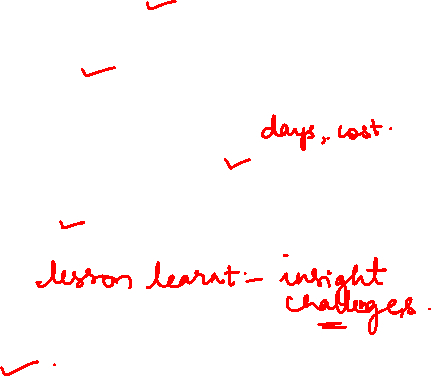 days, cost.
lesson learnt:- insight
challenges.